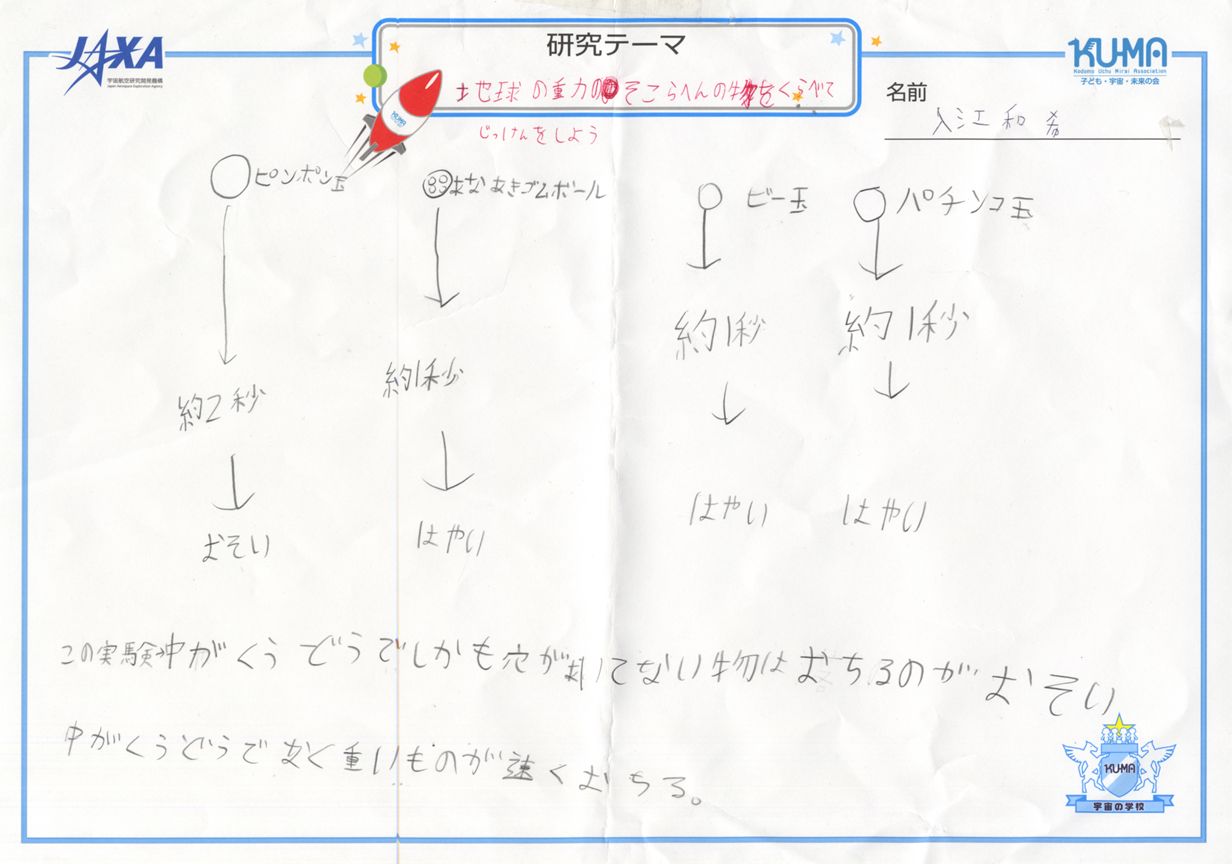 JAXA
宇宙航空研究開発機構
Japan Aerospace Exploration Agency
研究テーマ
土地球の重力の そこらへんの物をくらべて
じっけんをしよう
KU-MA
Kodomo Uchu Mirai Association
子ども・宇宙・未来の会
名前
入江和希
KU-MA
ピンポン玉
はなあきゴムボール
ビー玉
パチンコ玉
約2秒
約1秒
約1秒
約1秒
おそい
はやい
はやい
はやい
この実験中がくうどうでしかも穴が オ リてない物はおちるのが おそい
中がくうどうでなく重いものが速くおちる。
KU-MA
宇宙の学校